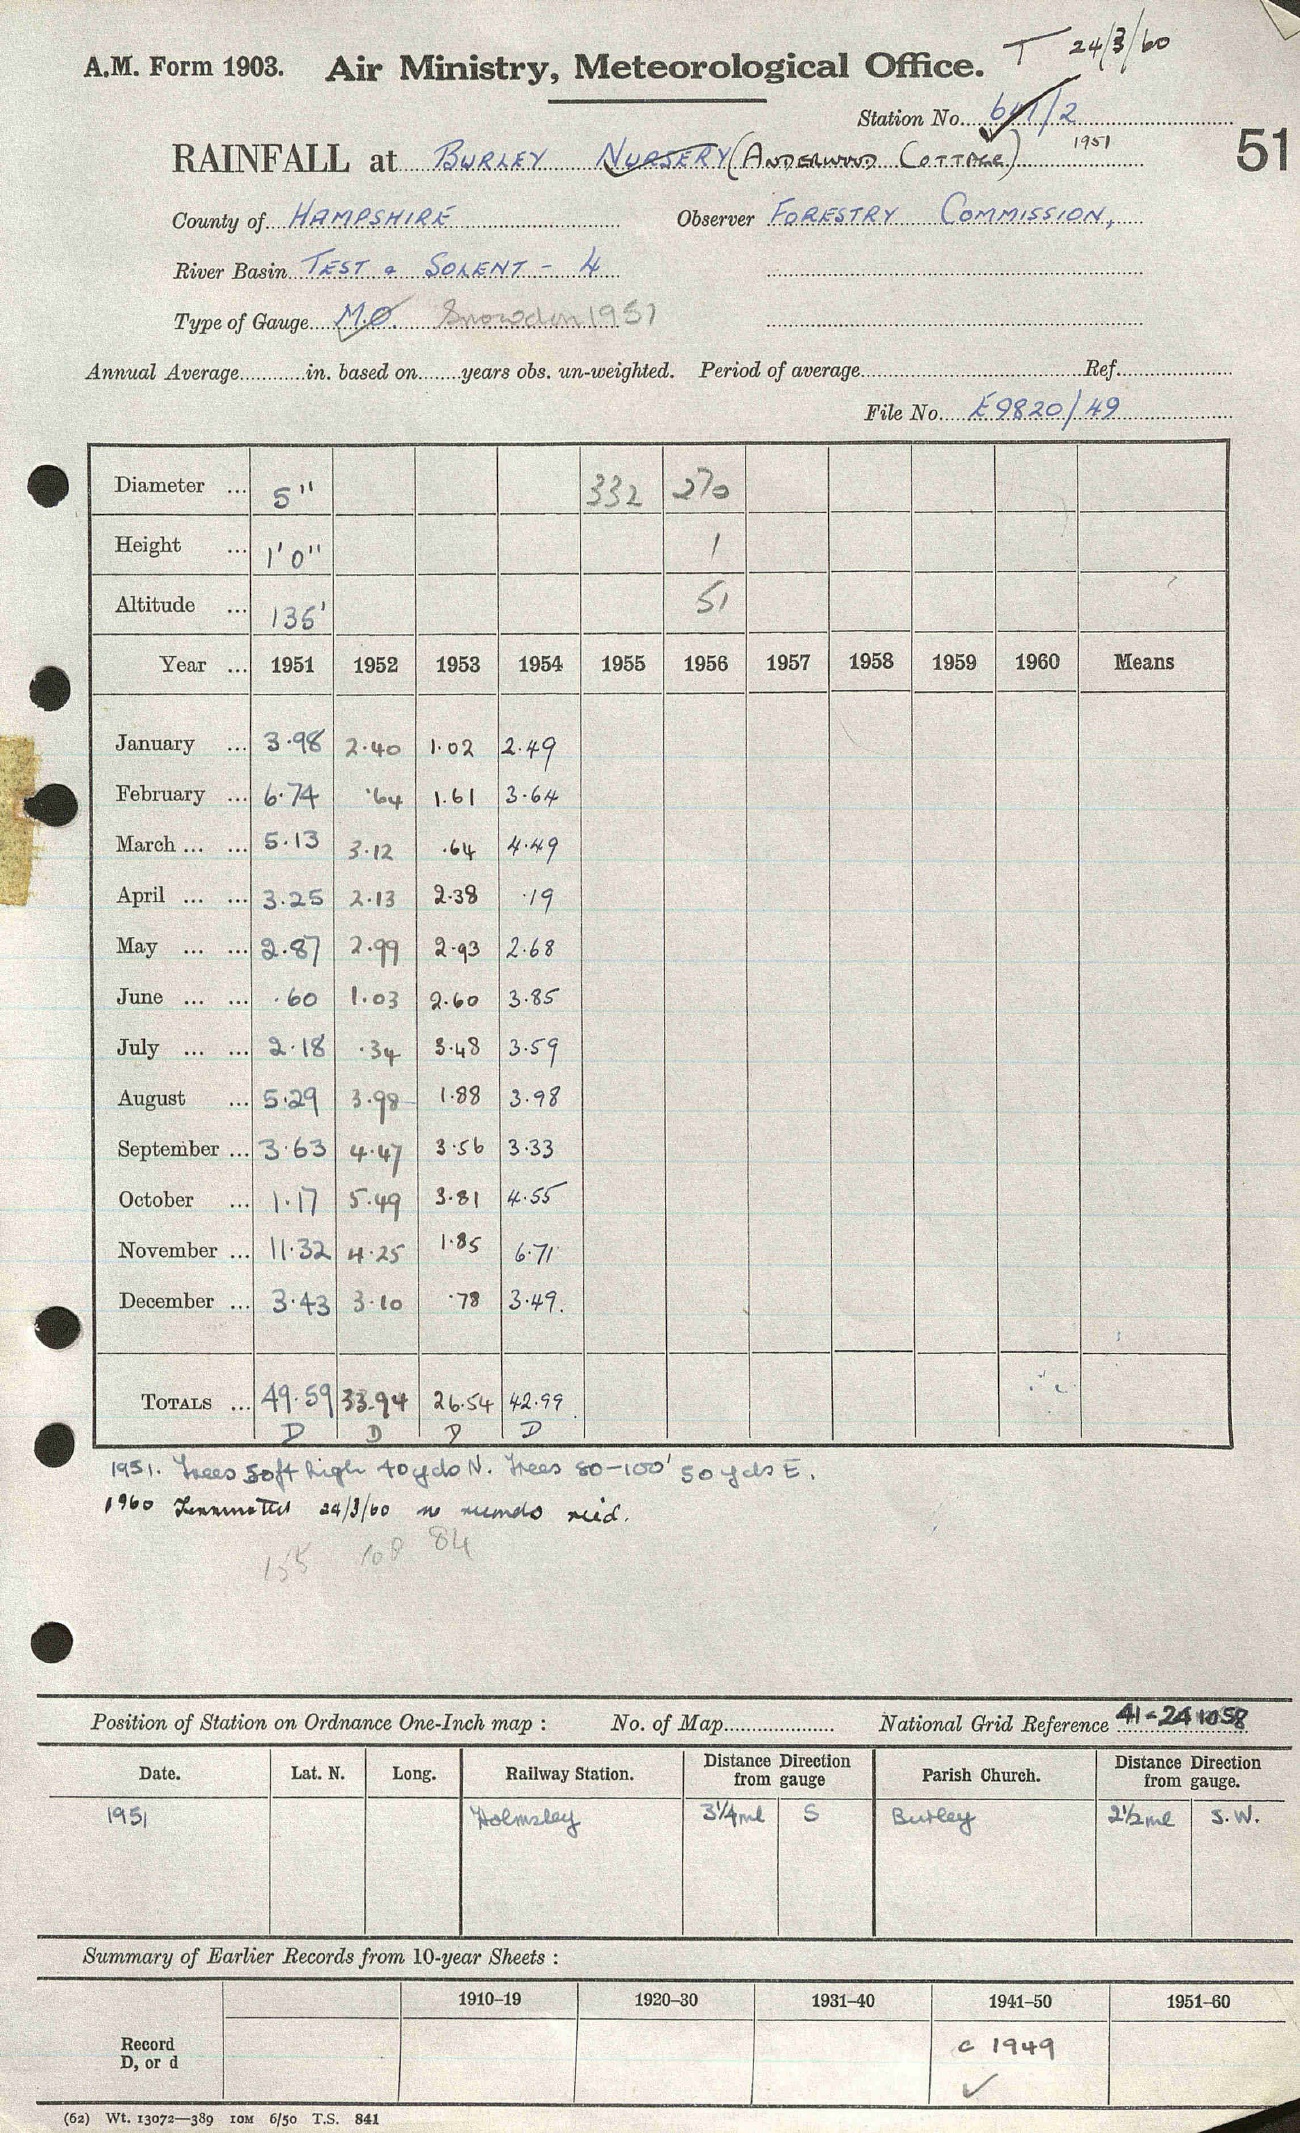 T 24/3/60
A.M. Form 1903. Air Ministry, Meteorological Office.
Station No. 641/2
RAINFALL at BURLEY NURSERY (ANDERWOOD COTTAGE) 1951
51
County of HAMPSHIRE Observer FORESTRY COMMISSION,
River Basin TEST & SOLENT - 4
Type of Gauge M.O. Snowdon 1951
Annual Average in. based on years obs. un-weighted. Period of average Ref.
File No. E9820/49
Diameter ... 5" 332 270
Height ... 1'0" 1
Altitude ... 135' 51
Year ... 1951 1952 1953 1954 1955 1956 1957 1958 1959 1960 Means
January ... 3.98 2.40 1.02 2.49
February ... 6.74 .64 1.61 3.64
March ... ... 5.13 3.12 .64 4.49
April ... ... 3.25 2.13 2.38 .19
May ... ... 2.87 2.99 2.93 2.68
June ... ... .60 1.03 2.60 3.85
July ... ... 2.18 .34 3.48 3.59
August ... 5.29 3.98 1.88 3.98
September ... 3.63 4.47 3.56 3.33
October ... 1.17 5.49 3.81 4.55
November ... 11.32 4.25 1.85 6.71
December ... 3.43 3.10 .78 3.49.
TOTALS ... 49.59 33.94 26.54 42.99
D D D D
1951. Trees 50ft high 40yds N. Trees 80-100' 50yds E.
1960 Terminated 24/3/60 no records recd.
155 108 84
Position of Station on Ordnance One-Inch map : No. of Map National Grid Reference 41-241058
Date. Lat. N. Long. Railway Station. Distance Direction from gauge Parish Church. Distance Direction from gauge.
1951 Holmsley 3¼ml S Burley 2½ml S.W.
Summary of Earlier Records from 10-year Sheets :
1910–19 1920–30 1931–40 1941–50 1951–60
Record D, or d c 1949
(62) Wt. 13072—389 10M 6/50 T.S. 841